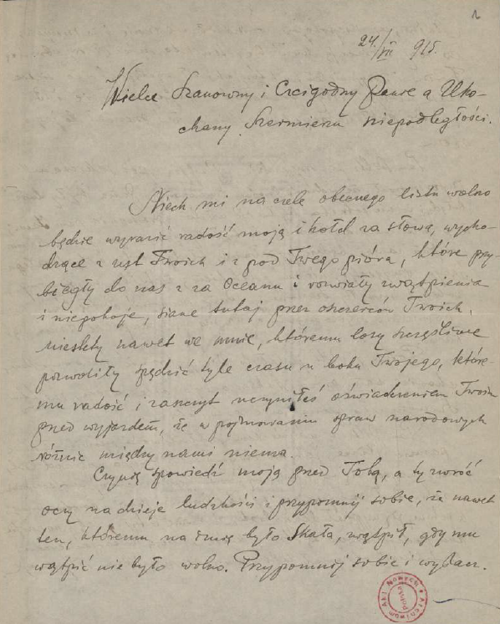 2
24/VII 915.
Wielce Szanowny i Czcigodny Panie a Uko-
chany Szermierzu niepodległości.
Niech mi na czele obecnego listu wolno
będzie wyrazić radość moją i hołd za słowa, wycho-
dzące z ust Twoich i z pod Twego pióra, które przy-
biegły do nas z za Oceanu i rozwiały zwątpienia
i niepokoje, siane tutaj przez oszczerców Twoich,
niestety nawet we mnie, któremu losy szczęśliwe
pozwoliły spędzić tyle czasu u boku Twojego, które-
mu radość i zaszczyt uczyniłeś oświadczeniem Twoim
przed wyjazdem, że w pojmowaniu spraw narodowych
różnic między nami niema.
Czynię spowiedź moją przed Tobą, a ty zwróć
oczy na dzieje ludzkości i przypomnij sobie, że nawet
ten, któremu na imię było Skała, wątpił, gdy mu
wątpić nie było wolno. Przypomnij sobie i wybacz.
Archiwum Akt Nowych